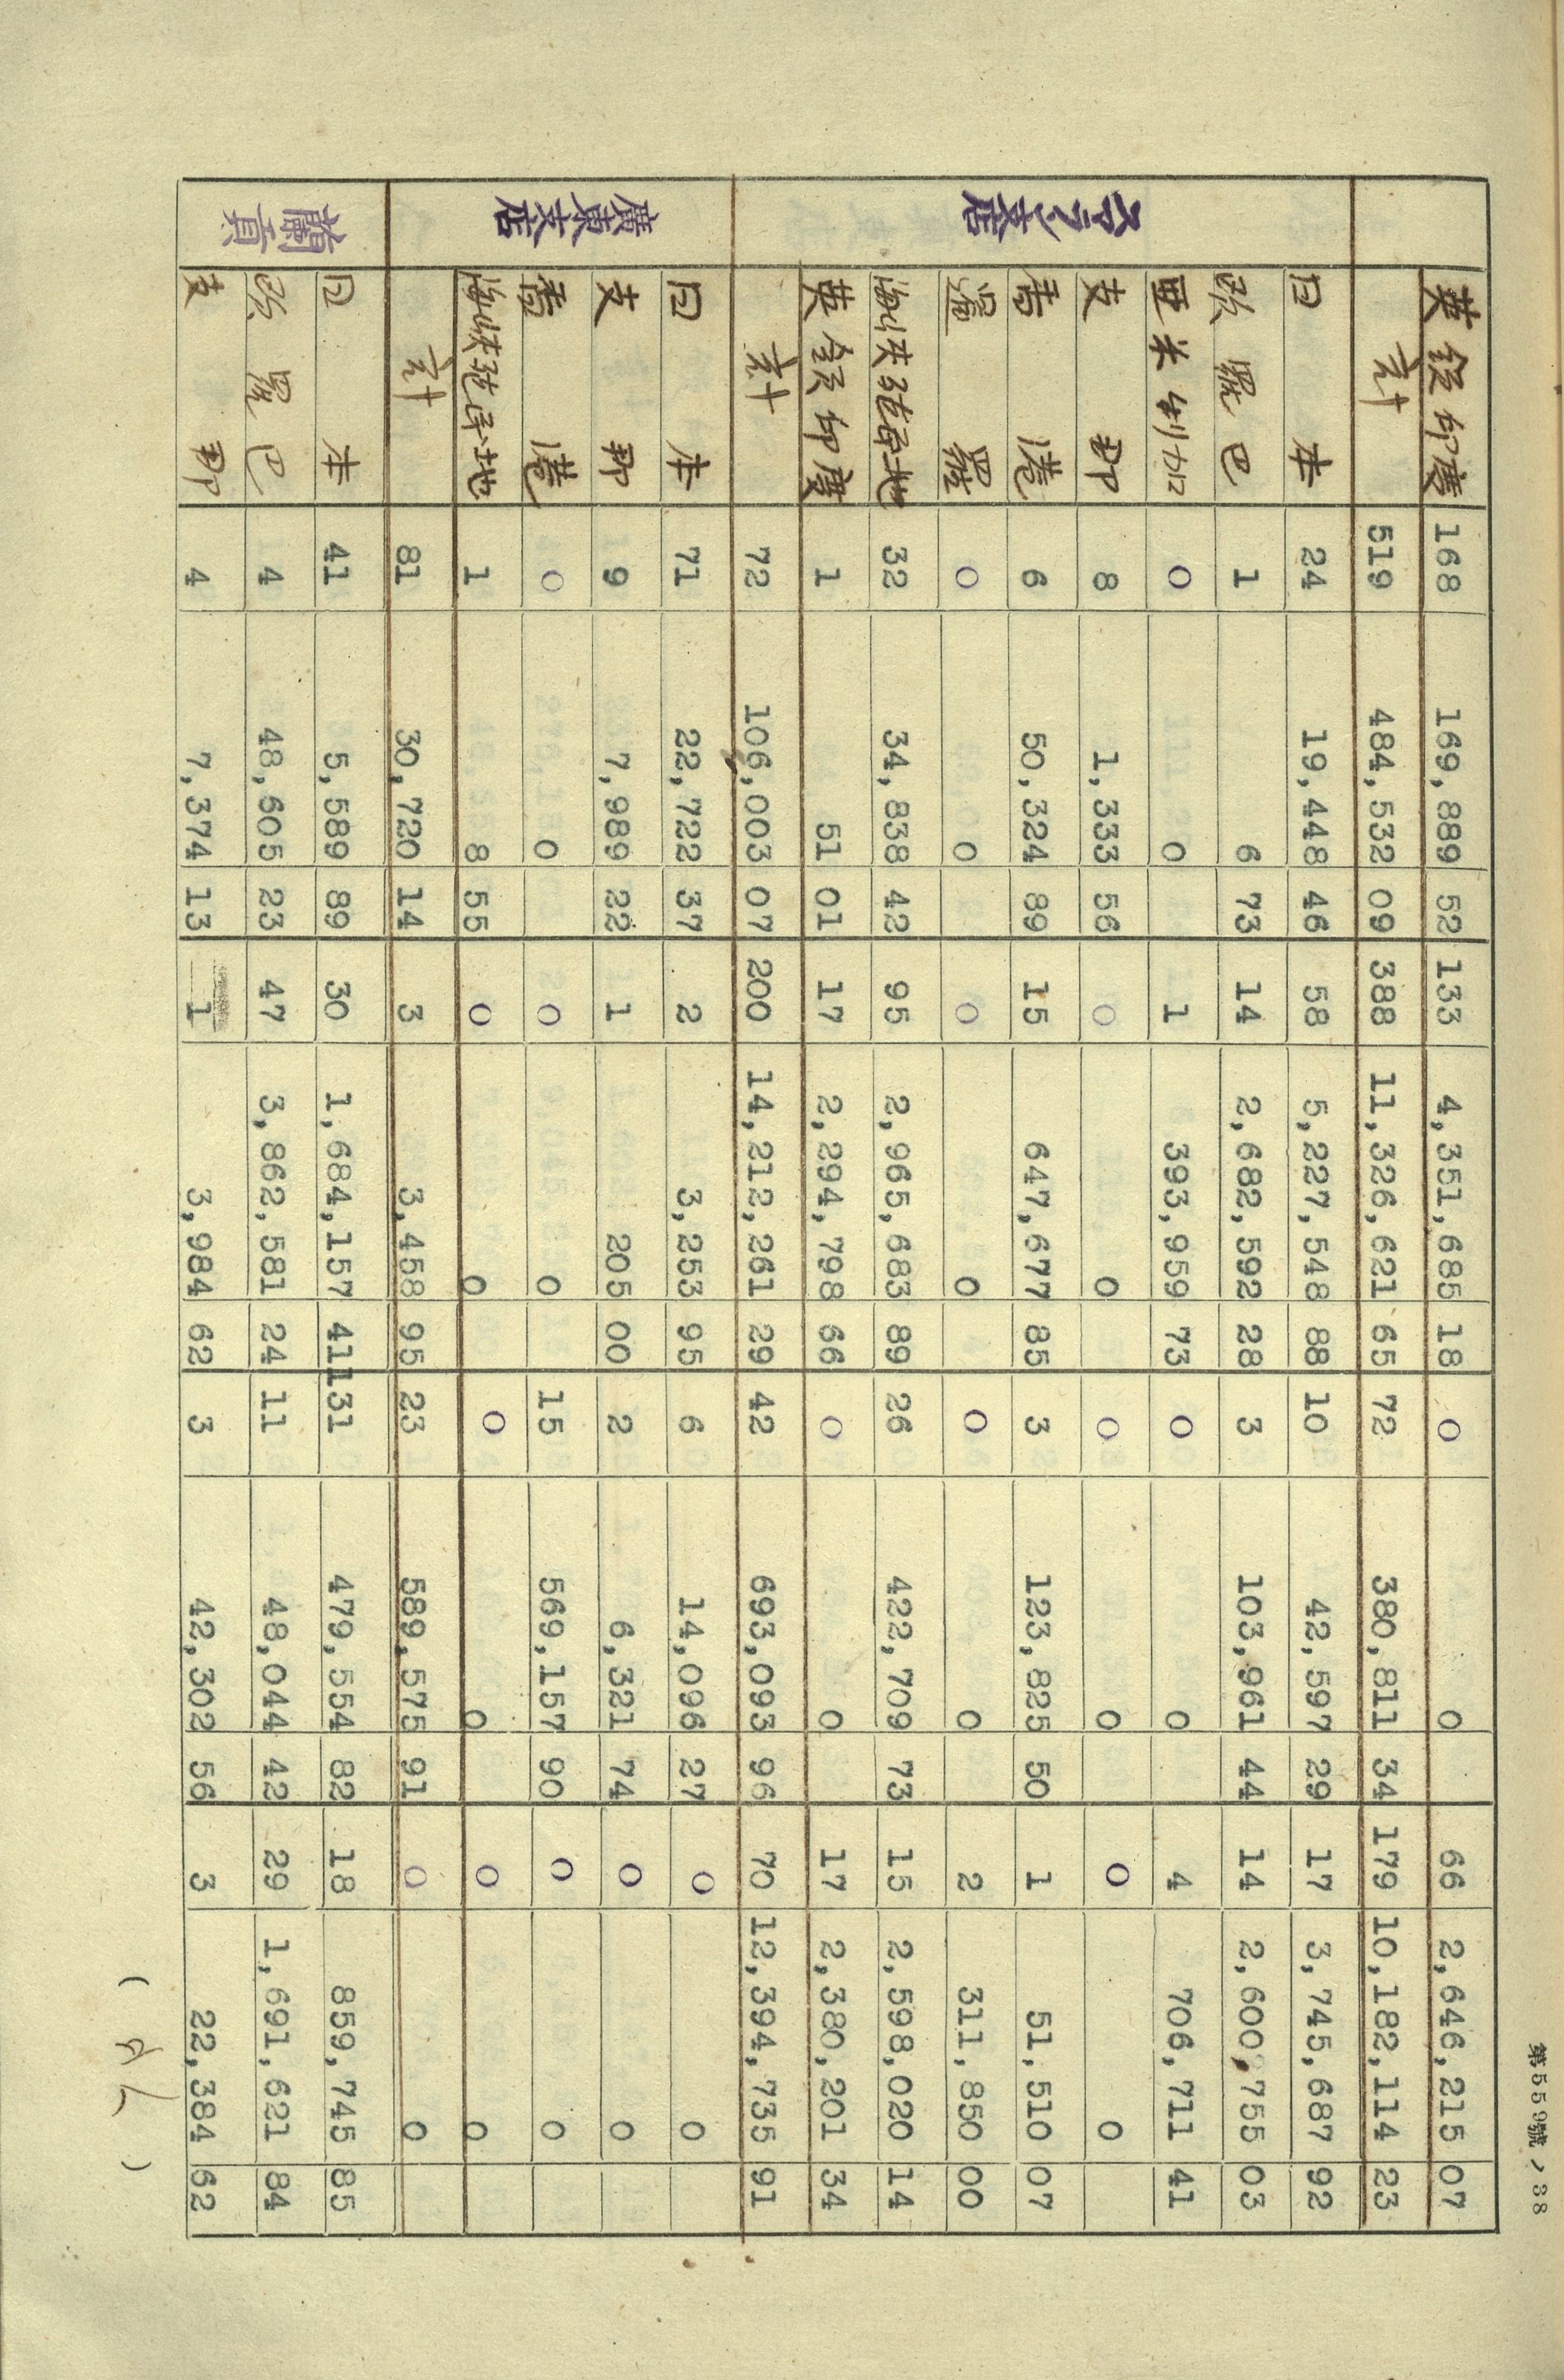 英領印度 168 169,889 52 133 4,351,685 18 0 0 66 2,646,215 07
計 519 484,532 09 388 11,326,621 65 72 380,811 34 179 10,182,114 23
スマラン支店
日本 24 19,448 46 58 5,227,548 88 10 42,597 29 17 3,745,687 92
欧羅巴 1 6 73 14 2,682,592 28 3 103,961 44 14 2,600,755 03
亜米利加 0 0 1 393,959 73 0 0 4 706,711 41
支那 8 1,333 56 0 0 0 0 0 0
香港 6 50,324 89 15 647,677 85 3 123,825 50 1 51,510 07
暹羅 0 0 0 0 0 0 2 311,850 00
海峡殖民地 32 34,838 42 95 2,965,683 89 26 422,709 73 15 2,598,020 14
英領印度 1 51 01 17 2,294,798 66 0 0 17 2,380,201 34
計 72 106,003 07 200 14,212,261 29 42 693,093 96 70 12,394,735 91
廣東支店
日本 71 22,722 37 2 3,253 95 6 14,096 27 0 0
支那 9 7,989 22 1 205 00 2 6,321 74 0 0
香港 0 0 0 0 15 569,157 90 0 0
海峡殖民地 1 8 55 0 0 0 0 0 0
計 81 30,720 14 3 3,458 95 23 589,575 91 0 0
蘭貢
日本 41 5,589 89 30 1,684,157 41 131 479,554 82 18 859,745 85
欧羅巴 4 48,605 23 47 3,862,581 24 11 48,044 42 29 1,691,621 84
支那 4 7,374 13 1 3,984 62 3 42,302 56 3 22,384 62
第559號、38